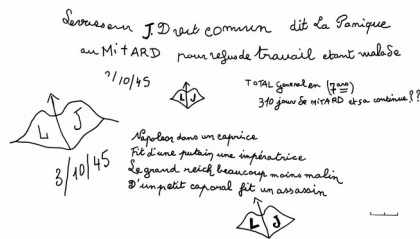 Levasseur J. Droit commun dit La Panique
au MitARD pour refus de travail etant malade
?/10/45
TOTAL General en (7 ans)
310 jours de MitARD et sa continue??
L J
L J
3/10/45
Napoleon dans un caprice
Fit d'une putain une impératrice
Le grand reich beaucoup moins malin
D'un petit caporal fit un assassin
L J